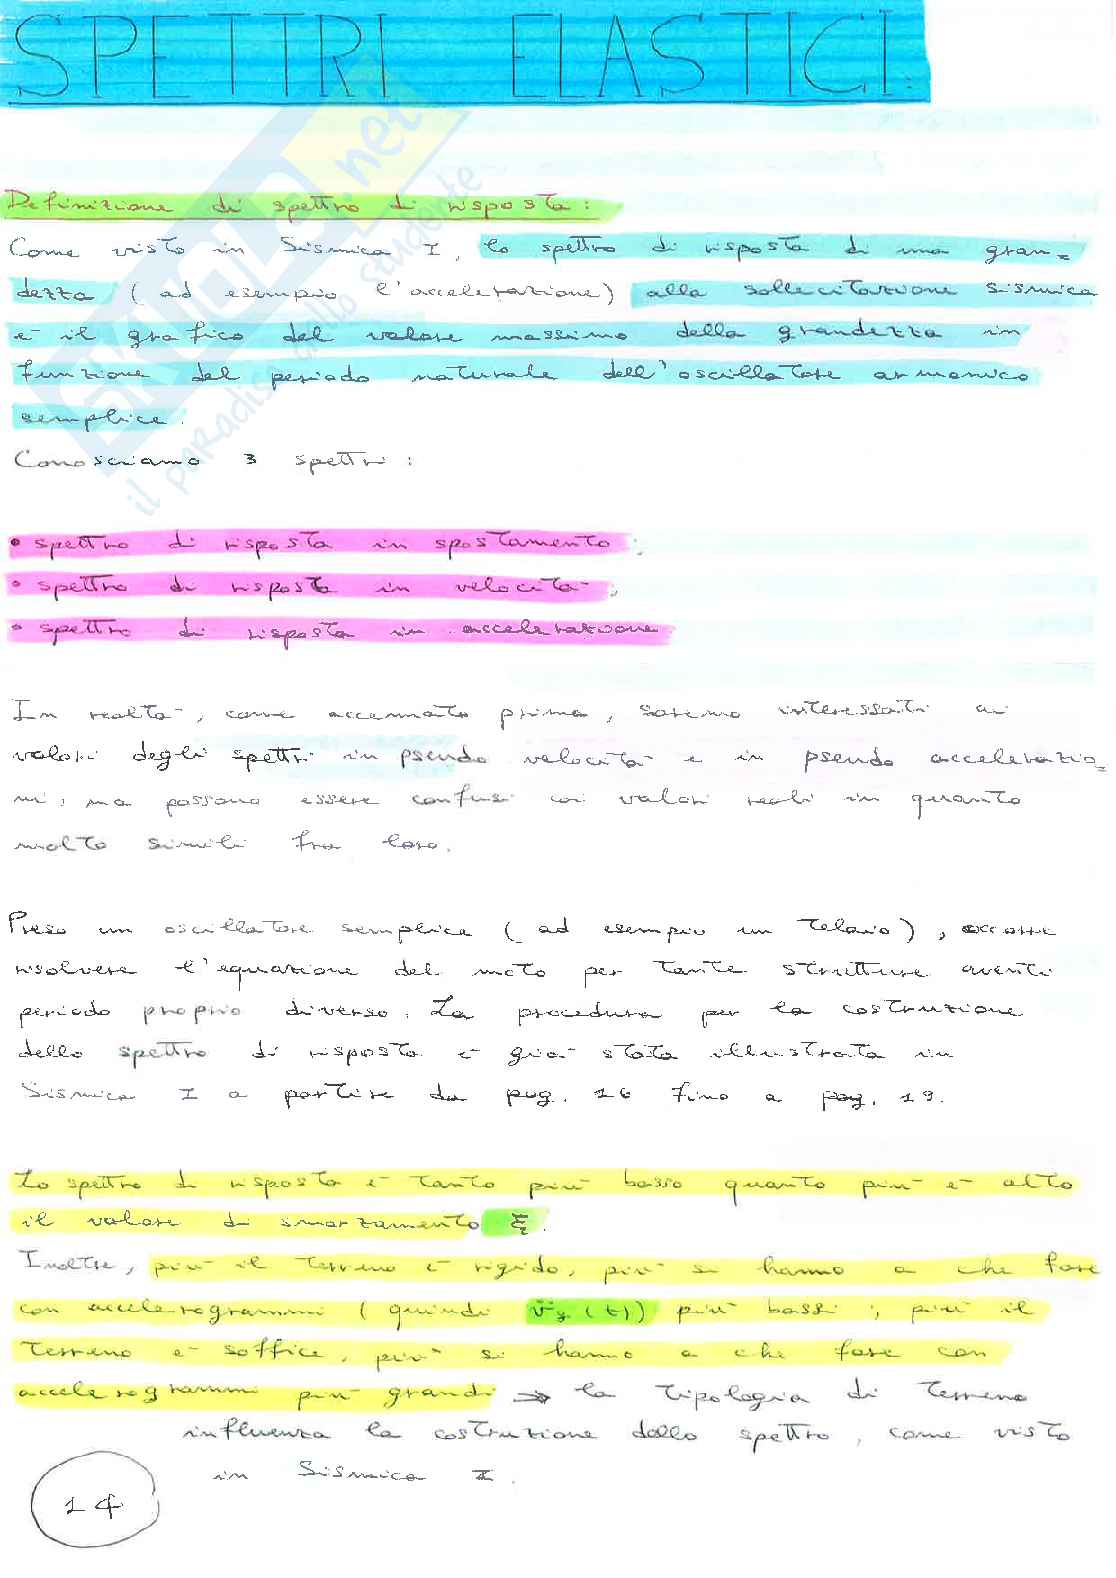 SPETTRI ELASTICI
Definizione di spettro di risposta:
Come visto in Sismica I, lo spettro di risposta di una gran=
dezza (ad esempio l'accelerazione) alla sollecitazione sismica
è il grafico del valore massimo della grandezza in
funzione del periodo naturale dell'oscillatore armonico
semplice.
Conosciamo 3 spettri:
• spettro di risposta in spostamento;
• spettro di risposta in velocità;
• spettro di risposta in accelerazione.
In realtà, come accennato prima, saremo interessati ai
valori degli spettri in pseudo velocità e in pseudo accelerazio=
ni, ma possono essere confusi coi valori reali in quanto
molto simili fra loro.
Preso un oscillatore semplice (ad esempio un telaio), occorre
risolvere l'equazione del moto per tante strutture aventi
periodo proprio diverso. La procedura per la costruzione
dello spettro di risposta è già stata illustrata in
Sismica I a partire da pag. 16 fino a pag. 19.
Lo spettro di risposta è tanto più basso quanto più è alto
il valore di smorzamento ξ.
Inoltre, più il terreno è rigido, più si hanno a che fare
con accelerogrammi (quindi v̈g(t)) più bassi; più il
terreno è soffice, più si hanno a che fare con
accelerogrammi più grandi → la tipologia di terreno
influenza la costruzione dello spettro, come visto
in Sismica I.
14
SKUOLA.net
il paradiso dello studente